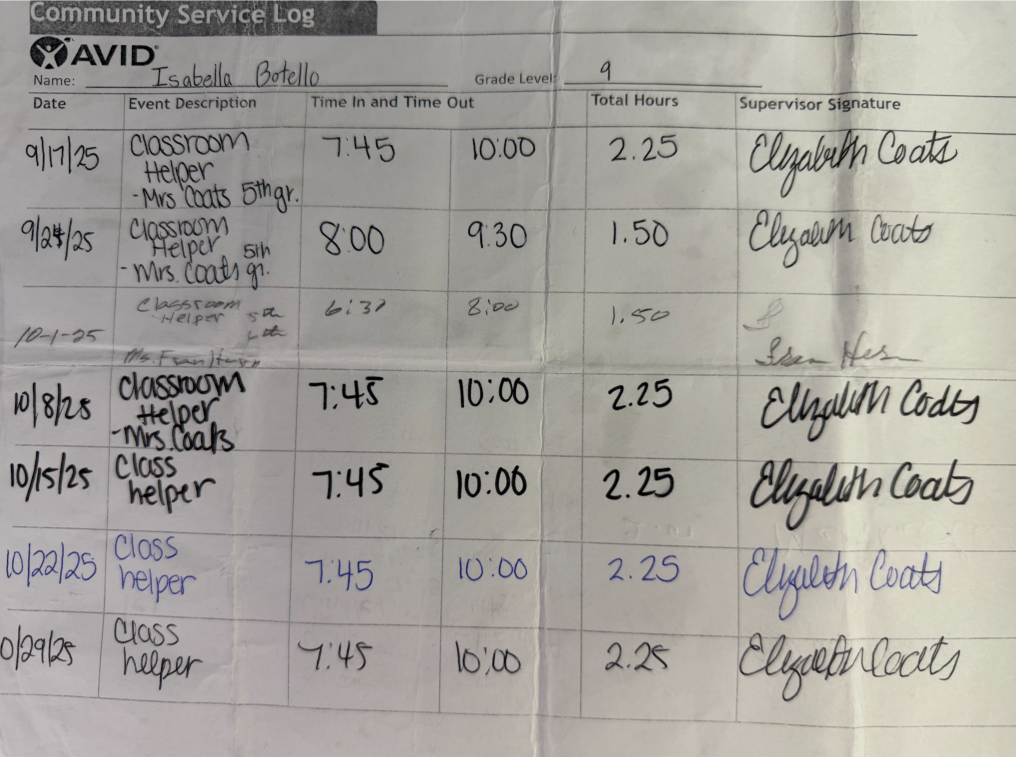 Community Service Log
AVID
Name: Isabella Botello Grade Level: 9
Date Event Description Time In and Time Out Total Hours Supervisor Signature
9/17/25 Classroom 7:45 10:00 2.25 Elizabeth Coats
Helper
- Mrs Coats 5th gr.
9/24/25 Classroom 8:00 9:30 1.50 Elizabeth Coats
Helper 5th
- Mrs. Coats gr.
Classroom 6:30 8:00 1.50
Helper 5th
10-1-25 6th
Ms. Fran
10/8/25 Classroom 7:45 10:00 2.25 Elizabeth Coats
Helper
- Mrs. Coats
10/15/25 Class 7:45 10:00 2.25 Elizabeth Coats
helper
10/22/25 Class 7:45 10:00 2.25 Elizabeth Coats
helper
0/29/25 Class 7:45 10:00 2.25 Elizabeth Coats
helper